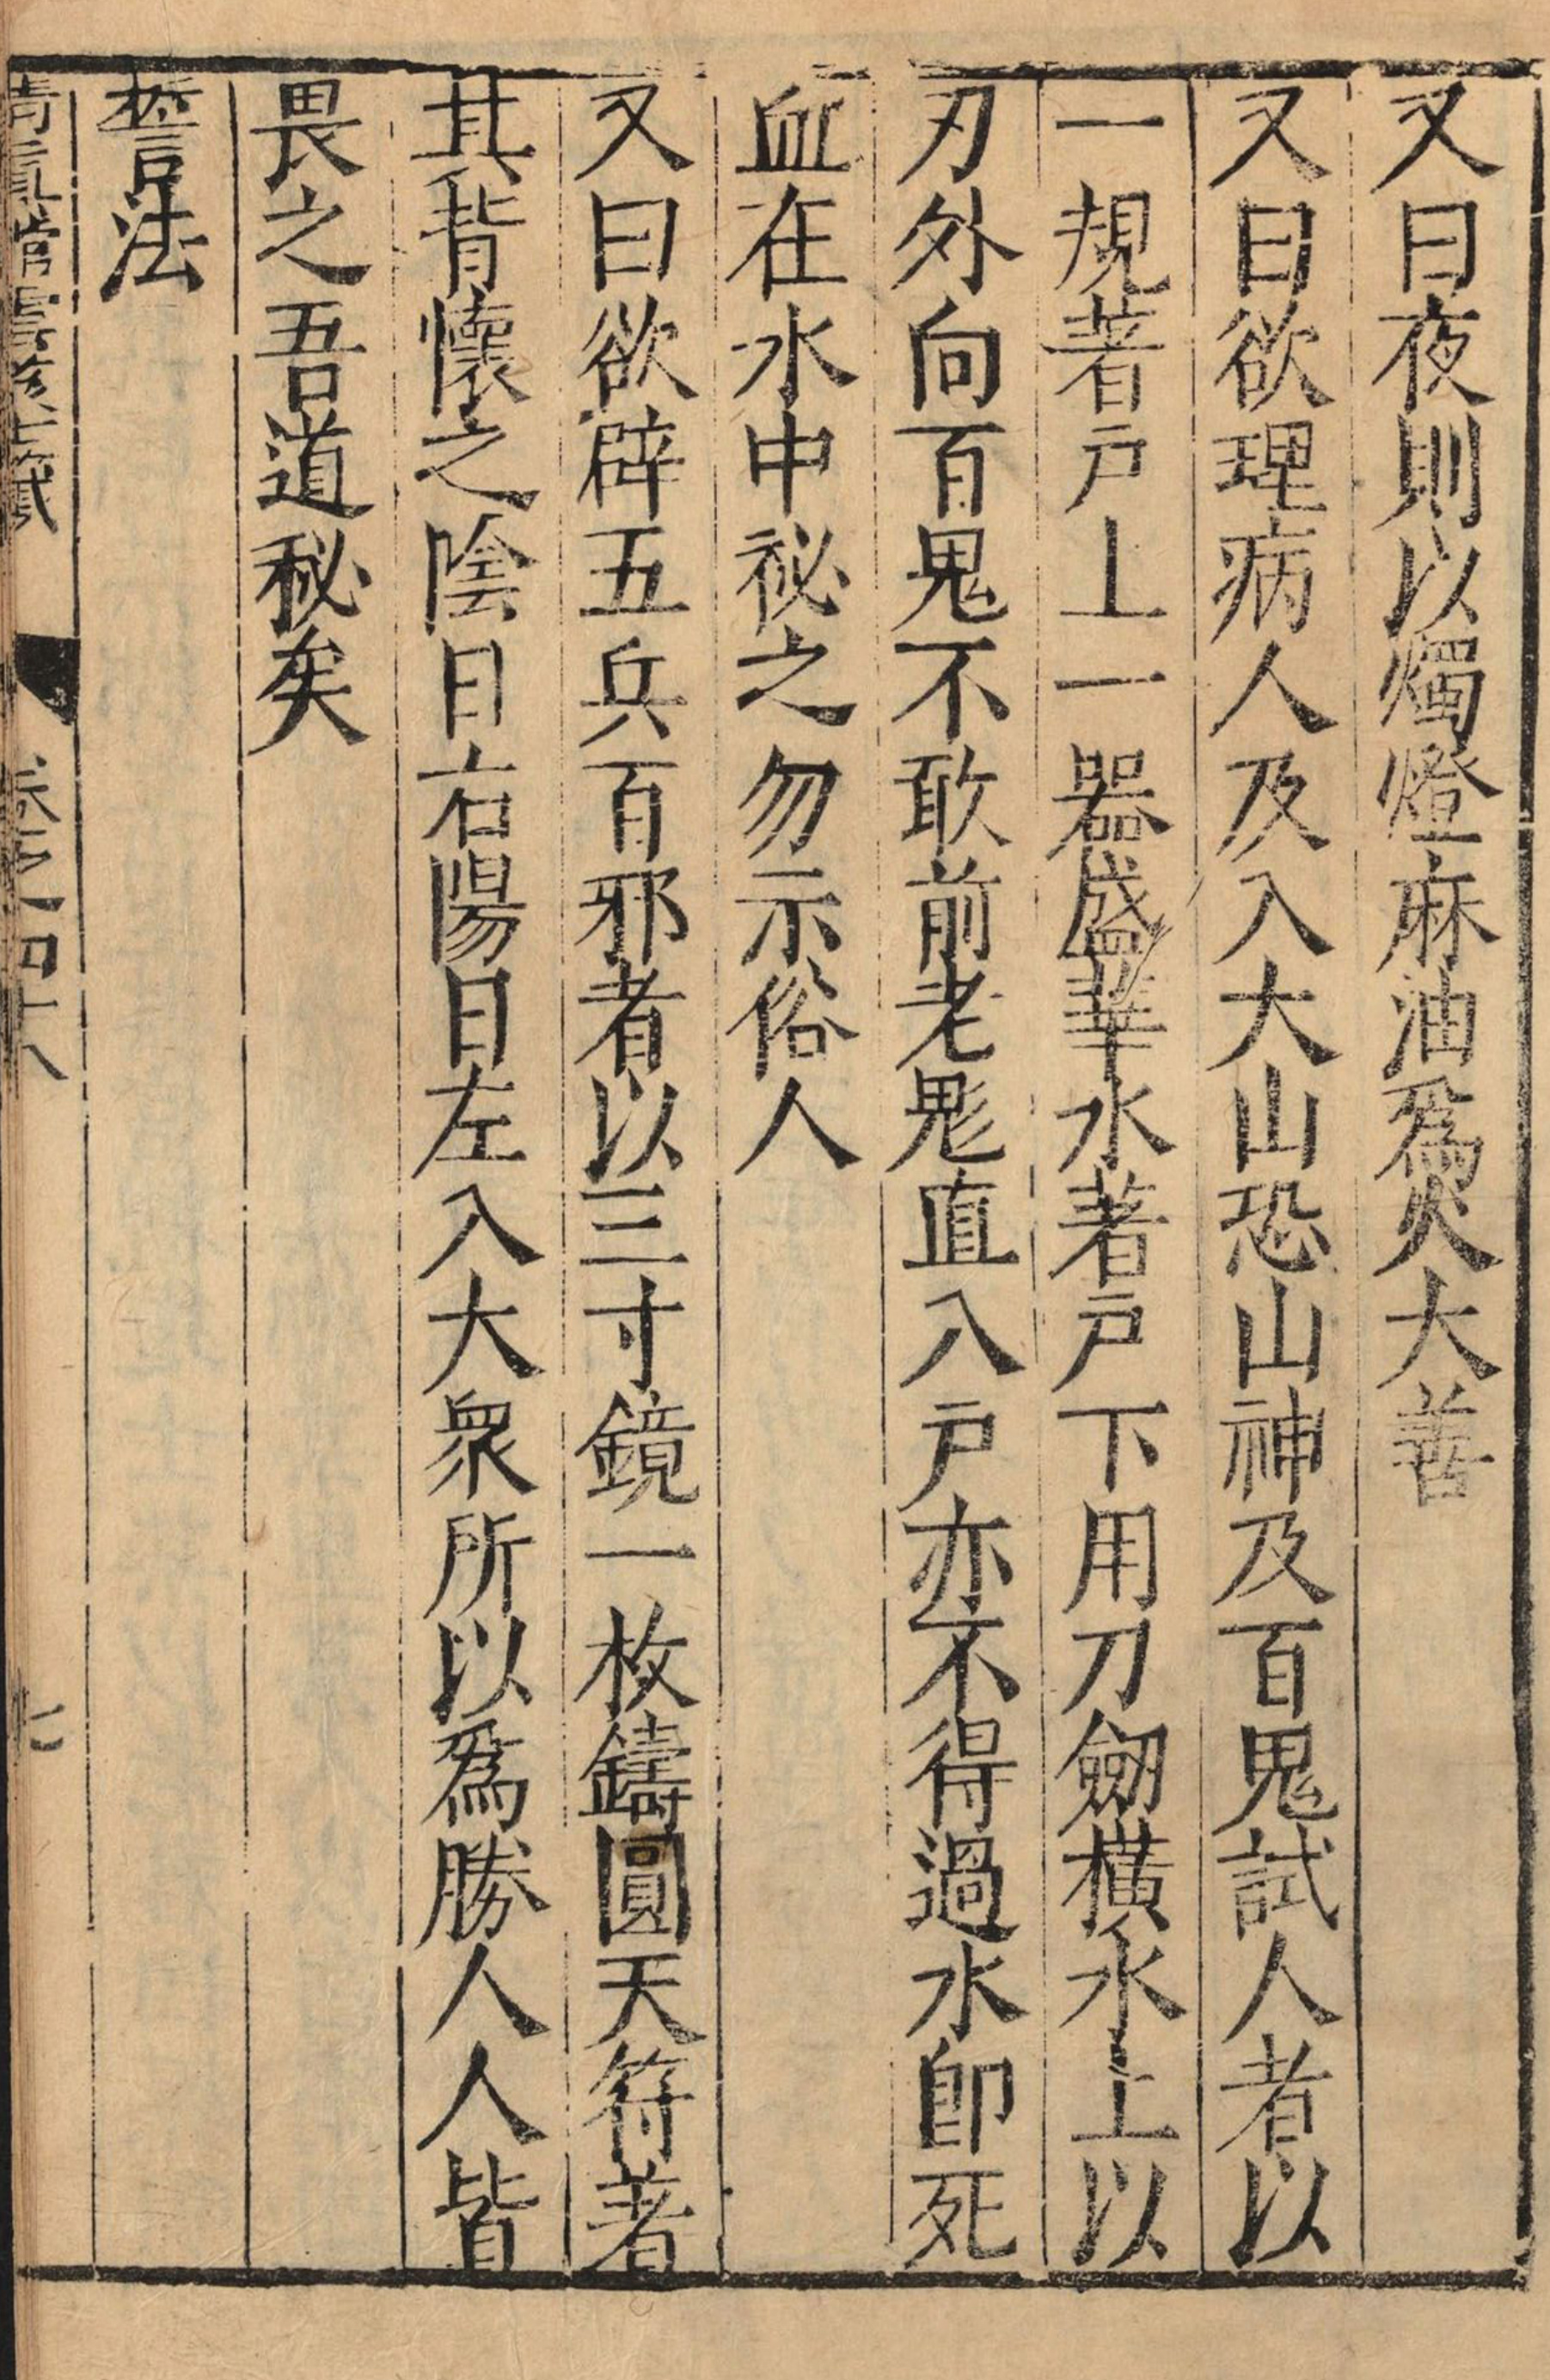 又曰夜則以燭燈麻油爲火大善
又曰欲理病人及入大山恐山神及百鬼試人者以
一規著戸上一器盛華水著戸下用刀劒橫水上以
刃外向百鬼不敢前老鬽直入戸亦不得過水卽死
血在水中祕之勿示俗人
又曰欲辟五兵百邪者以三寸鏡一枚鑄圓天符著
其背懷之陰日右陽日左入大衆所以爲勝人人皆
畏之吾道秘矣
誓法
清眞館雲笈七籖 卷之四十八 七